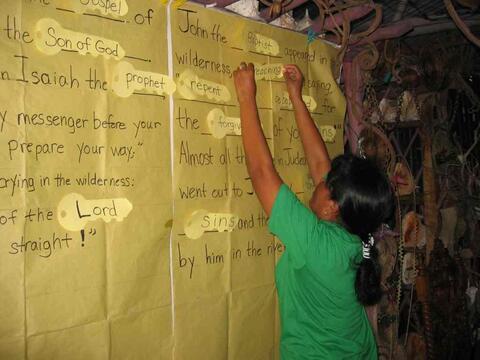 Gospel of
the Son of God
Isaiah the prophet
messenger before your
Prepare your way;"
crying in the wilderness:
of the Lord
straight!"
John the Baptist appeared in
wilderness, preaching saying
"repent for
the of your sins"
Almost all the in Judea
went out to
sins and the
by him in the river